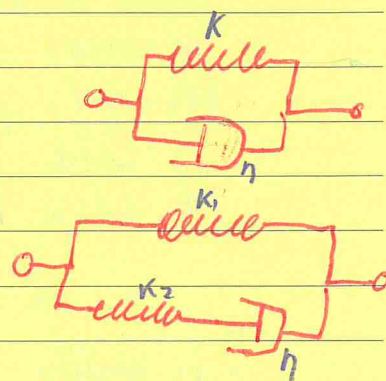 K
η
K1
K2
η